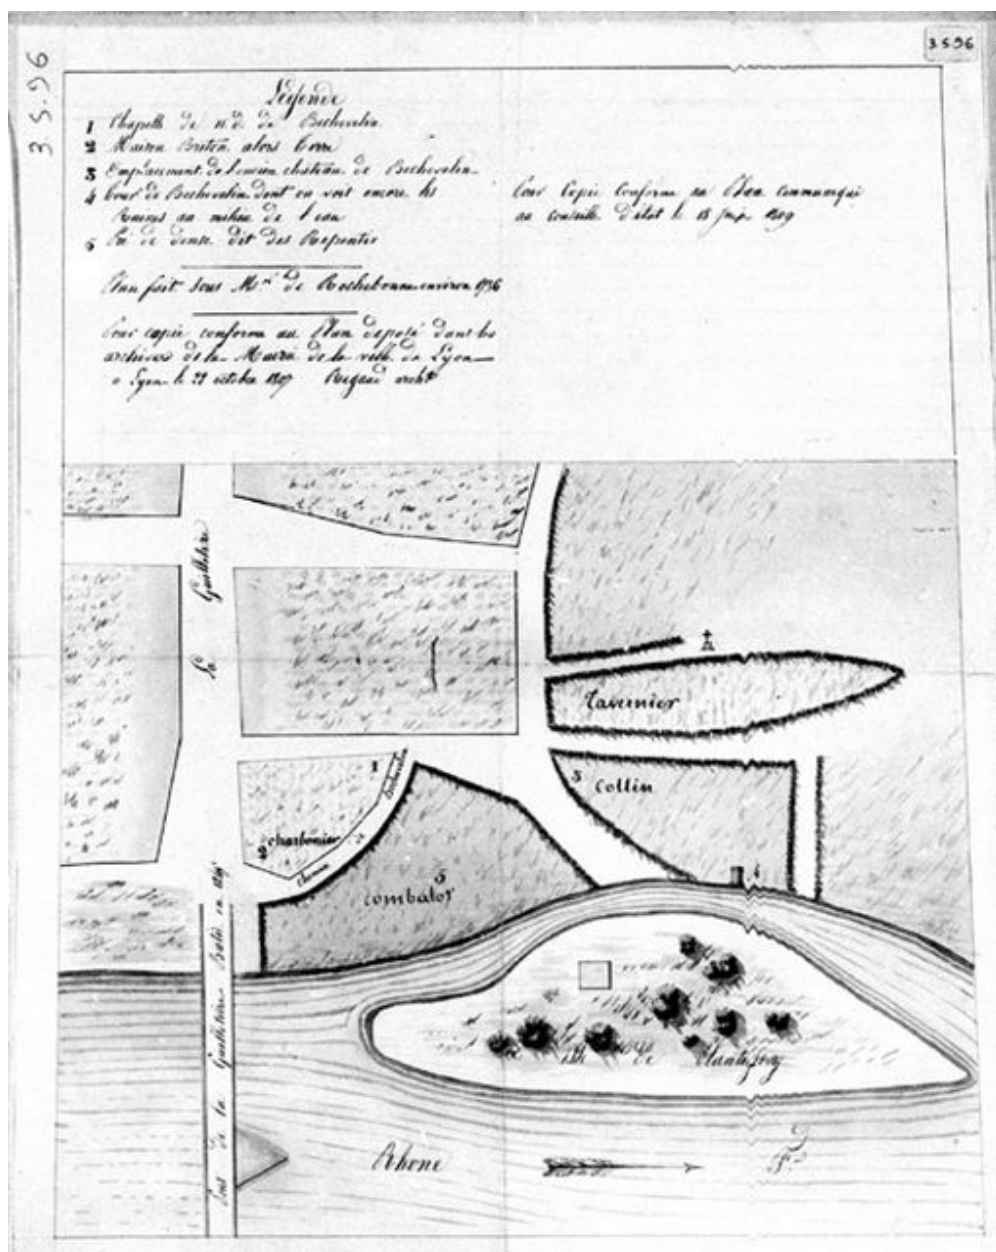 3 S 96
3.S.96
Légende
1 Chapelle de n.d. de Bechevelin
2 Maison Breton alors
3 Emplacement de l'ancien chateau de Bechevelin
4 tour de Bechevelin dont on voit encore les
Ruines au milieu de l'eau
5 Pré de danse dit des Repenties
Plan fait sous Mgr de Rochebonne environ 1736
Pour copie conforme au Plan déposé dans les
archives de la Mairie de la ville de Lyon
a Lyon le 22 octobre 1807 Rigaud archte
Pour Copie Conforme au Plan communiqué
au conseille d'état le 18 1809
La Guillotiere
Tavernier
3 Collin
1
charbonier
Chemin de Bechevelin
5
combalot
4
isle de
Pont de la Guillotiere Bati en
Rhone